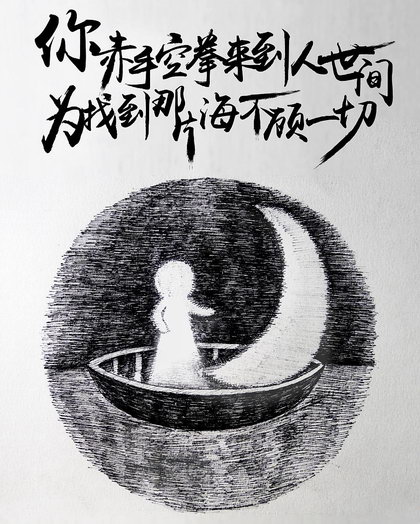 你赤手空拳来到人世间
为找到那片海不顾一切